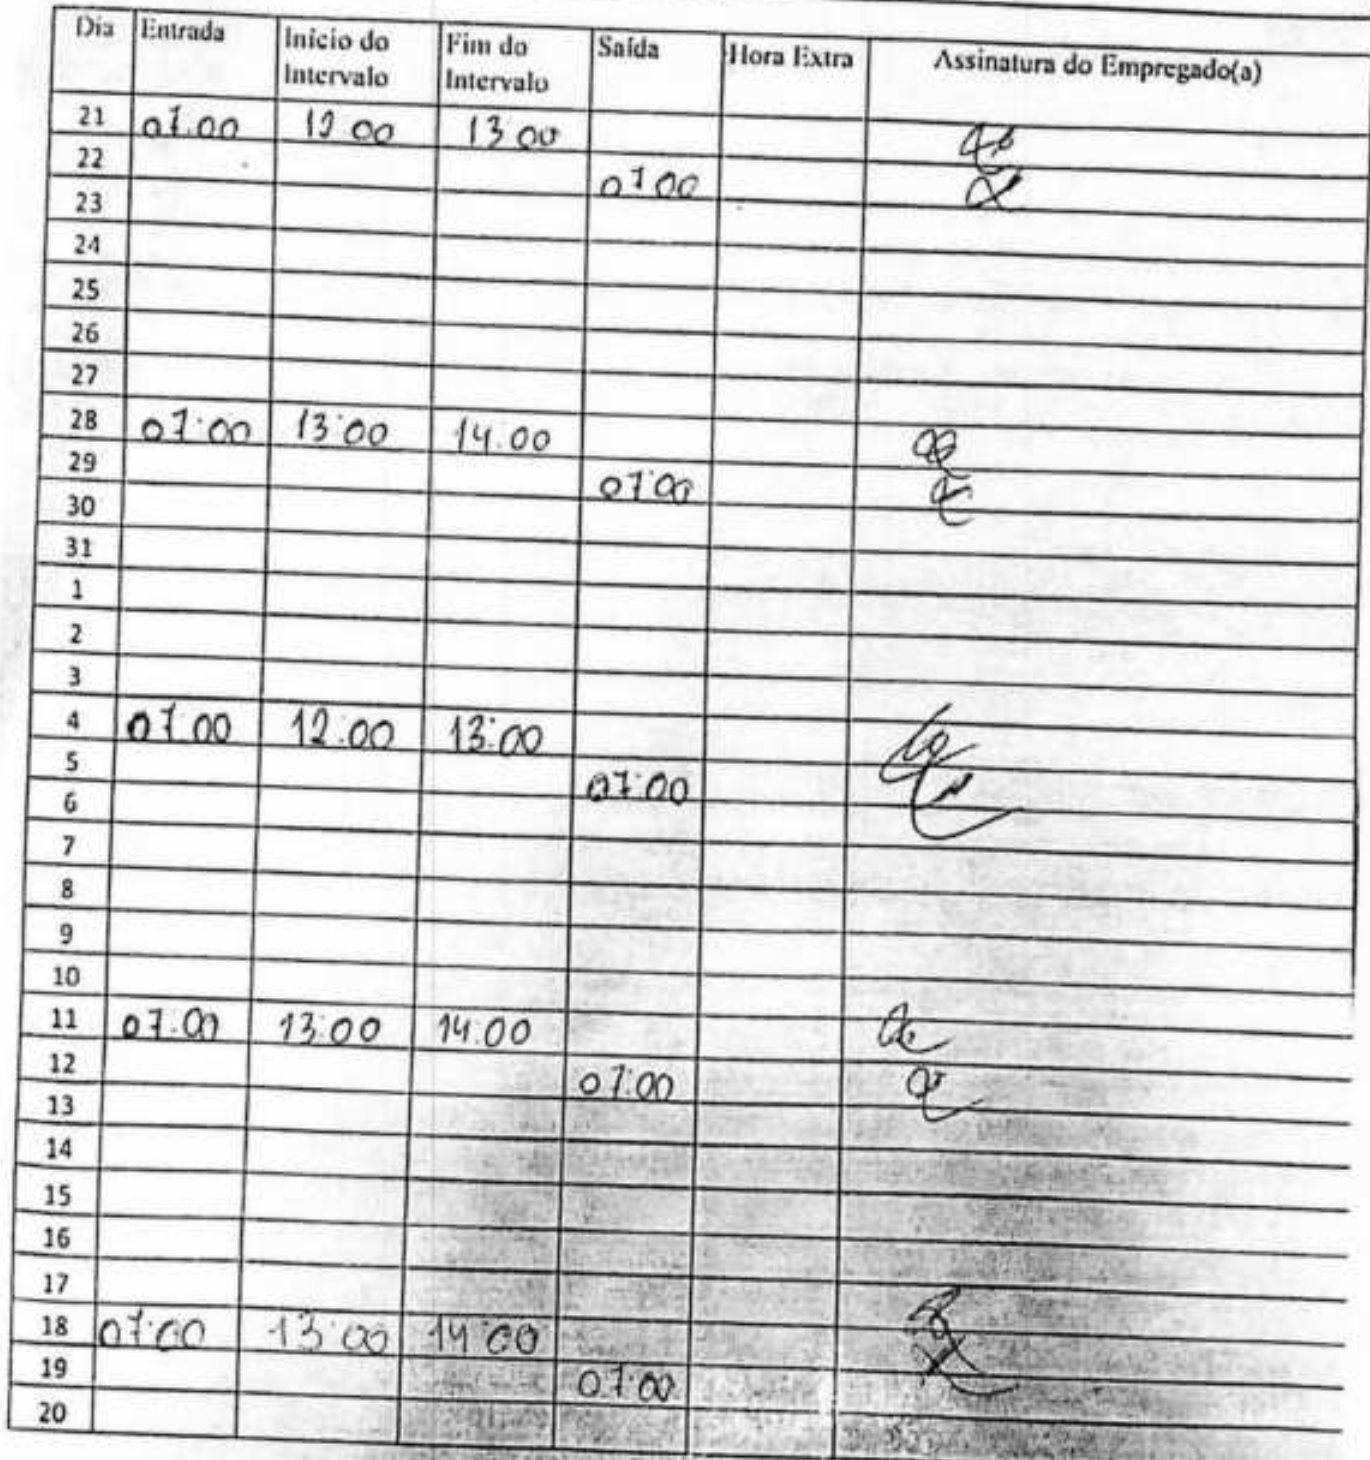 Dia Entrada Início do Intervalo Fim do Intervalo Saída Hora Extra Assinatura do Empregado(a)
21 07:00 12:00 13:00
22 07:00
23
24
25
26
27
28 07:00 13:00 14:00
29 07:00
30
31
1
2
3
4 07:00 12:00 13:00
5 07:00
6
7
8
9
10
11 07:00 13:00 14:00
12 07:00
13
14
15
16
17
18 07:00 13:00 14:00
19 07:00
20